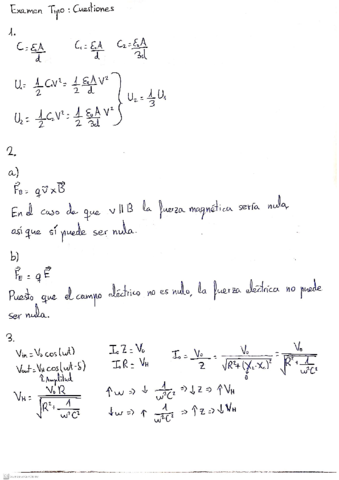 Examen Tipo: Cuestiones
1.
C = ε₀A/d   C₁ = ε₀A/d   C₂ = ε₀A/3d
U₁ = 1/2 C₁V² = 1/2 ε₀A/d V²
U₂ = 1/2 C₂V² = 1/2 ε₀A/3d V²
U₂ = 1/3 U₁
2.
a)
F⃗_B = q v⃗ x B⃗
En el caso de que v ∥ B la fuerza magnética sería nula,
asi que sí puede ser nula.
b)
F⃗_E = q E⃗
Puesto que el campo eléctrico no es nulo, la fuerza eléctrica no puede
ser nula.
3.
V_in = V₀ cos(ωt)   I₀ Z = V₀   I₀ = V₀/Z = V₀/√(R² + (X_L - X_C)²) = V₀/√(R² + 1/ω²C²)
V_out = V_H cos(ωt - δ)   I₀ R = V_H   0
↑ Amplitud
V_H = V₀R/√(R² + 1/ω²C²)   ↑ω => ↓ 1/ω²C² => ↓Z => ↑V_H
↓ω => ↑ 1/ω²C² => ↑Z => ↓V_H